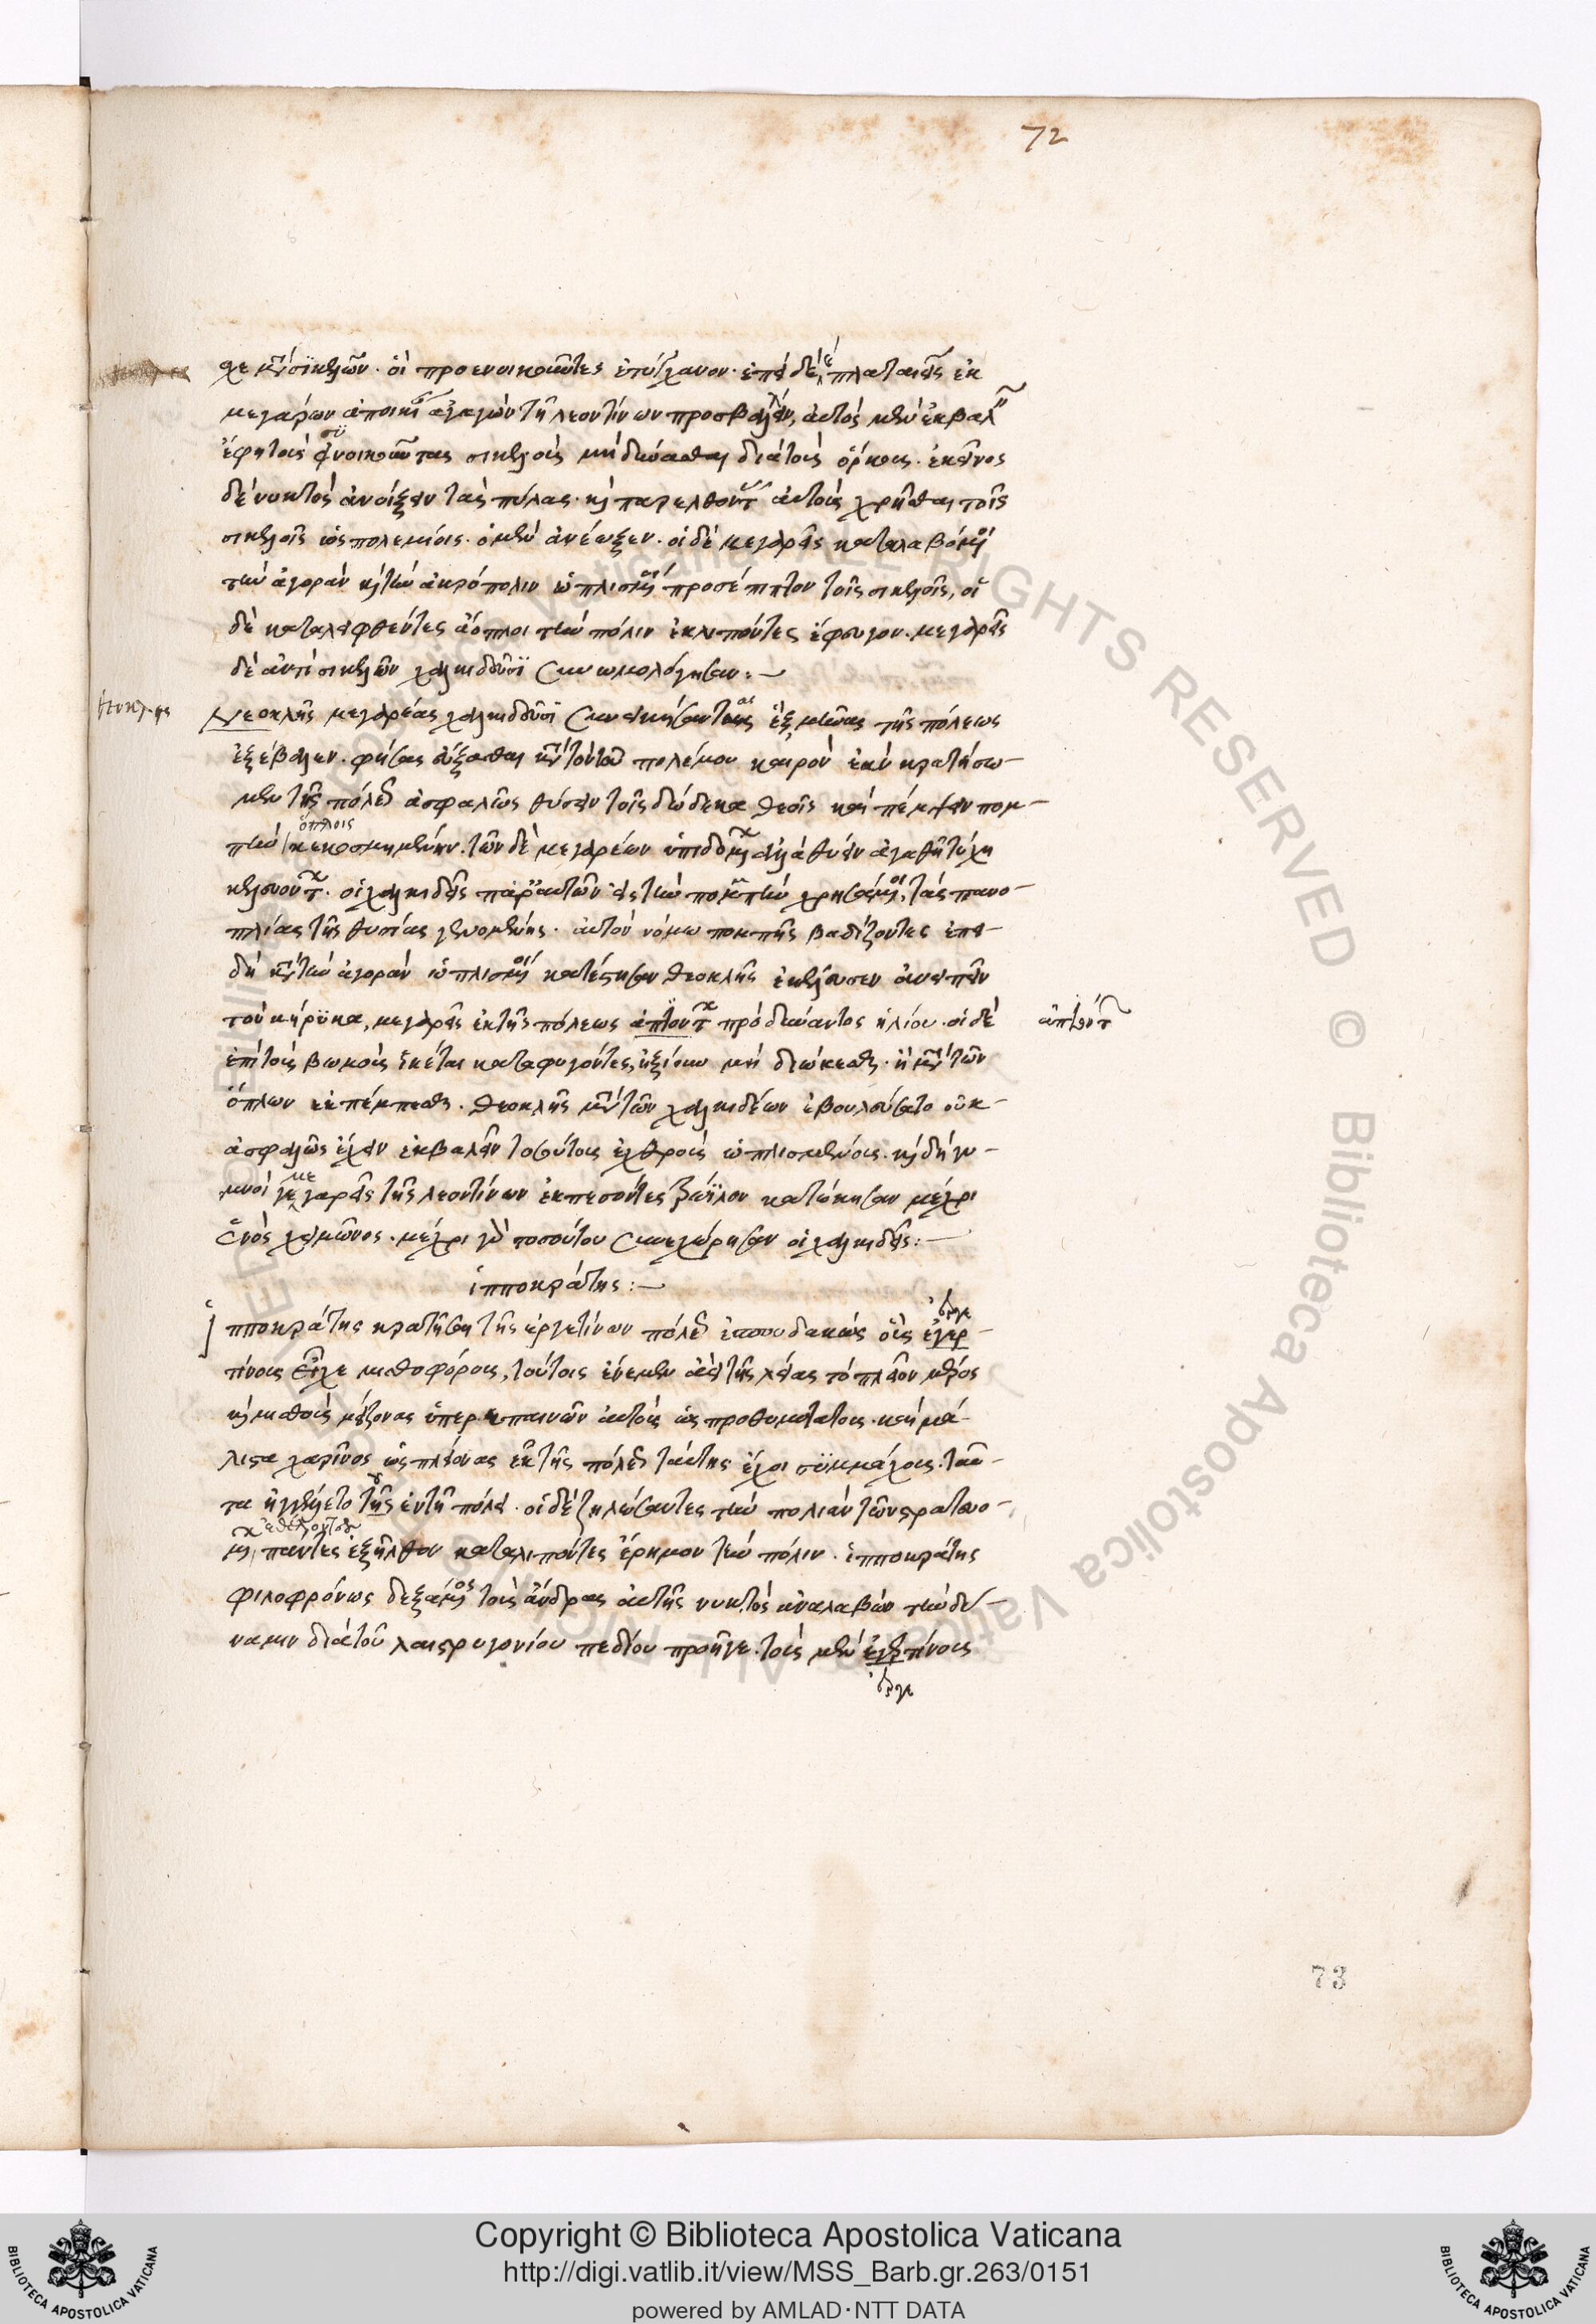 72
χε μετὰ σικελῶν. οἱ προενοικοῦντες ἐτύγχανον. ἐπεὶ δὲ πλαταιεῖς ἐκ
μεγάρων ἀποικίαν ἀγαγὼν τῇ λεοντίνων προσβάλλειν, αὐτὸς μὲν ἐκβαλεῖν
ἔφη τοὺς συνοικοῦντας σικελοὺς μὴ δύνασθαι διὰ τοὺς ὅρκους. ἐκεῖνος
δὲ νυκτὸς ἀνοίξειν τὰς πύλας. καὶ παρελθόντας αὐτοὺς χρῆσθαι τοῖς
σικελοῖς ὡς πολεμίοις. ὁ μὲν ἀνέωξεν. οἱ δὲ μεγαρεῖς καταλαβόμενοι
τὴν ἀγορὰν καὶ τὴν ἀκρόπολιν ὡπλισμένοι προσέπιπτον τοῖς σικελοῖς, οἱ
δὲ καταλειφθέντες ἄοπλοι τὴν πόλιν ἐκλιπόντες ἔφυγον. μεγαρεῖς
δὲ ἀντὶ σικελῶν χαλκιδεῦσι συνωμολόγησαν:
Νεοκλῆς μεγαρέας χαλκιδεῦσι συνοικήσαντας ἓξ μῆνας τῆς πόλεως
ἐξέβαλεν. φήσας εὔξασθαι κατὰ τὸν τοῦ πολέμου καιρὸν ἐὰν κρατήσω-
μεν τῆς πόλεως ἀσφαλῶς θύσειν τοῖς δώδεκα θεοῖς καὶ πέμψειν πομ-
πὴν ὅπλοις κεκοσμημένην. τῶν δὲ μεγαρέων θύειν ἀγαθῇ τύχῃ
κελευόντων. οἱ χαλκιδεῖς παρ' αὐτῶν εἰς τὴν πομπὴν χρησάμενοι τὰς πανο-
πλίας τῆς θυσίας γενομένης. αὐτὸν νόμῳ πομπῆς βαδίζοντες ἐπει-
δὴ κατὰ τὴν ἀγορὰν ὡπλισμένοι κατέστησαν θεοκλῆς ἐκέλευσεν ἀνειπεῖν
τὸν κήρϋκα, μεγαρεῖς ἐκ τῆς πόλεως πρὸ δύναντος ἡλίου. οἱ δὲ
ἐπὶ τοὺς βωμοὺς ἱκέται καταφυγόντες, ἠξίουν μὴ διώκεσθαι. ἢ μετὰ τῶν
ὅπλων ἐκπέμπεσθαι. θεοκλῆς μετὰ τῶν χαλκιδέων ἐβουλεύσατο οὐκ
ἀσφαλῶς ἔχειν ἐκβαλεῖν τοσούτοις ἐχθροὺς ὡπλισμένοις. καὶ δὴ γυ-
μνοὶ μεγαρεῖς τῆς λεοντίνων ἐκπεσόντες κατώκησαν μέχρι
ἑνὸς χειμῶνος. μέχρι γὰρ τοσούτου συνεχώρησαν οἱ χαλκιδεῖς:
ἱπποκράτης:
ἱπποκράτης κρατῆσαι τῆς ἐργετίνων πόλεως ἐσπουδακὼς οὓς ἐγερ-
τίνους εἶχε μισθοφόρους, τούτοις ἔνεμεν ἀεὶ τῆς λείας τὸ πλεῖον μέρος
καὶ μισθοὺς μείζονας ὑπερεπαινῶν αὐτοὺς ὡς προθυμοτάτους. καὶ μά-
λιστα χαρῖνος ὡς πλείονας ἐκ τῆς πόλεως ταύτης ἔχοι συμμάχους. ταῦ-
τα ἠγγέλλετο τοῖς ἐν τῇ πόλει. οἱ δὲ ζηλώσαντες τὴν τῶν στρατευο-
μένων, πάντες ἐθελονταὶ ἐξῆλθον καταλιπόντες ἔρημον τὴν πόλιν. ἱπποκράτης
φιλοφρόνως δεξάμενος τοὺς ἄνδρας αὐτῆς νυκτὸς ἀναλαβὼν τὴν δύ-
ναμιν διὰ τοῦ λαιστρυγονίου πεδίου προῆγε. τοὺς μὲν ἐγερτίνους
73
Copyright © Biblioteca Apostolica Vaticana
http://digi.vatlib.it/view/MSS_Barb.gr.263/0151
powered by AMLAD·NTT DATA
BIBLIOTECA APOSTOLICA VATICANA
BIBLIOTECA APOSTOLICA VATICANA